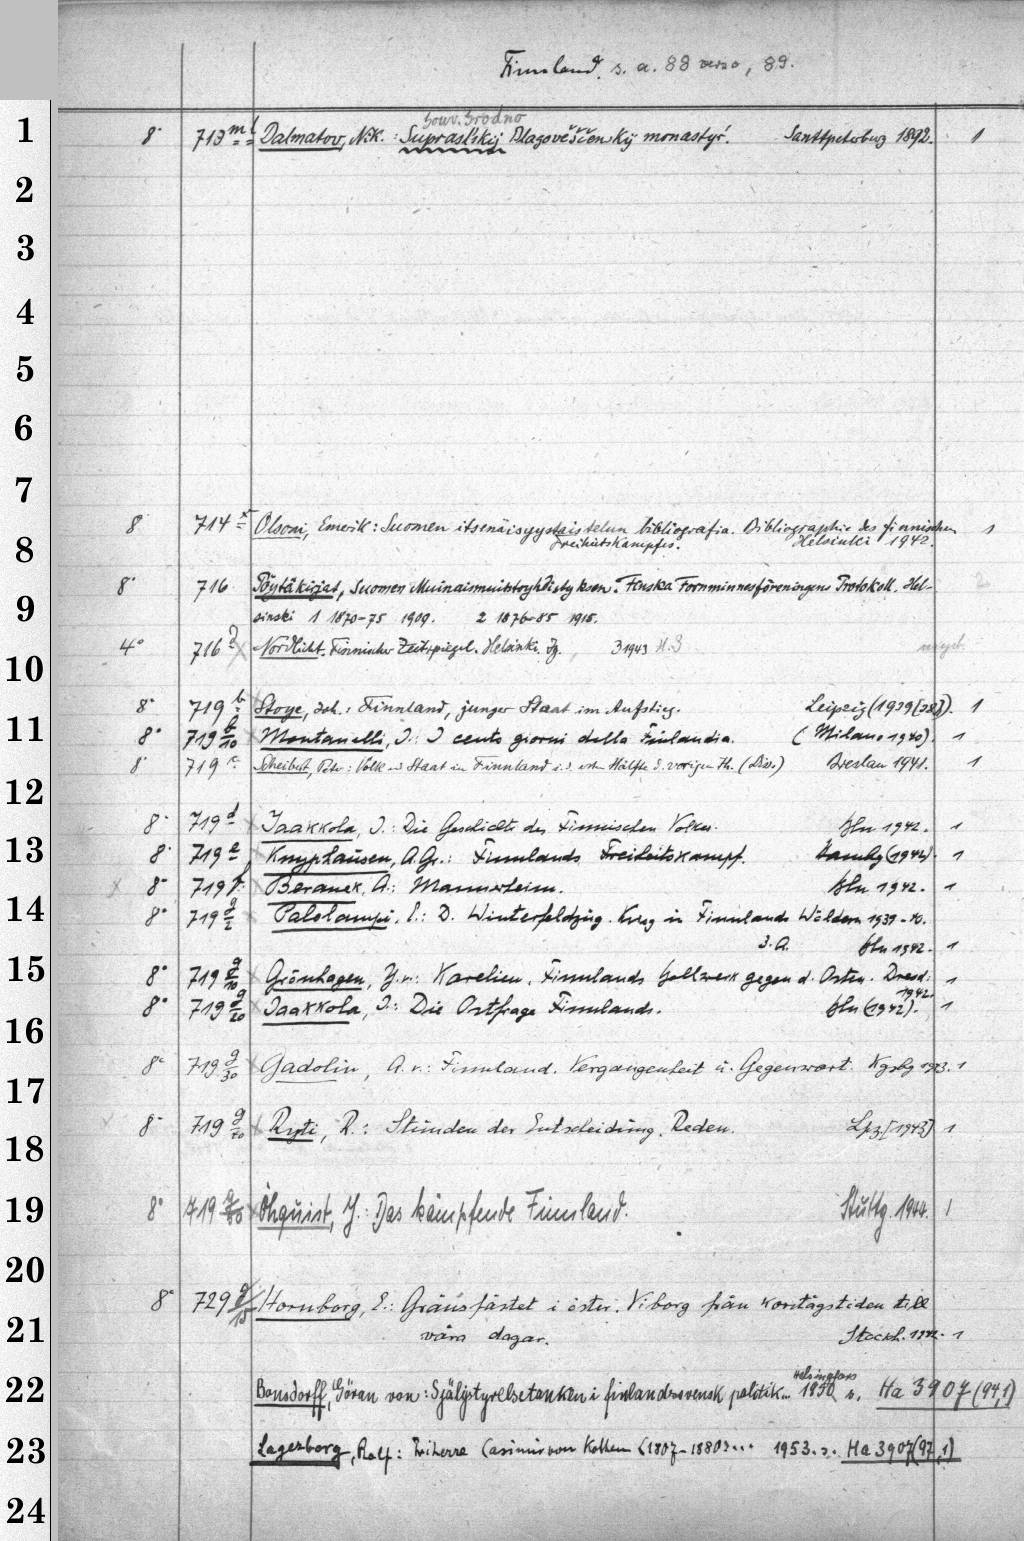 Finnland. s. a. 88 verso, 89.
Gouv. Grodno
1 8° 713 m l Dalmatov, N.K.: Supraśl'skij Blagověščenskij monastyŕ. Sanktpeterburg 1892. 1
2
3
4
5
6
7
8° 714 x Olsoni, Emerik: Suomen itsenäisyystaistelun bibliografia. Bibliographie des finnischen 1
8 Freiheitskampfes. Helsinki 1942.
8° 716 Pöytäkirjat, Suomen Muinaismuistoyhdistyksen. Finska Fornminnesföreningens Protokoll. Hel-
9 sinski 1 1870-75 1909. 2 1876-85 1915.
4° 716 Nordlicht. Finnischer Zeitspiegel. Helsinki. Jg. 3 1943 H.3
10
8° 719 b Stoye, Joh.: Finnland, junger Staat im Aufstieg. Leipzig (1939[38]). 1
11 8° 719 b/10 Montanelli, I.: I cento giorni della Finlandia. (Milano 1940). 1
8° 719 c Scheibert, Peter: Volk und Staat in Finnland i.d. ersten Hälfte d. vorigen Jh. (Diss.) Breslau 1941. 1
12
8° 719 d Jaakkola, J.: Die Geschichte des Finnischen Volkes. Bln 1942. 1
13 8° 719 e Knyphausen, A.Gr.: Finnlands Freiheitskampf. Hambg (1942). 1
8° 719 f Beranek, A.: Mannerheim. Bln 1942. 1
14 8° 719 g/2 Palolampi, E.: D. Winterfeldzug. Krieg in Finnlands Wäldern 1939-40.
3. A. Bln 1942. 1
15 8° 719 g/10 Grönhagen, Y.v.: Karelien. Finnlands Bollwerk gegen d. Osten. Dresd. 1
1942.
8° 719 g/20 Jaakkola, J.: Die Ostfrage Finnlands. Bln (1942). 1
16
8° 719 g/30 Gadolin, A.v.: Finnland. Vergangenheit u. Gegenwart. Kgsbg 1943. 1
17
8° 719 g/70 Ryti, R.: Stunden der Entscheidung. Reden. Lpz [1943] 1
18
19 8° 719 Öhquist, J.: Das kämpfende Finnland. Stuttg. 1944. 1
20
8° 729 g/15 Hornborg, E.: Gränsfästet i öster. Viborg från korstågstiden till
21 våra dagar. Stockh. 1942. 1
Helsingfors
22 Bonsdorff, Göran von: Självstyrelsetanken i finlandssvensk politik... 1950 s. Ha 3907 (94,1)
23 Lagerborg, Rolf: Friherre Casimir von Kothen (1807-1880)... 1953. s. Ha 3907 (97,1)
24